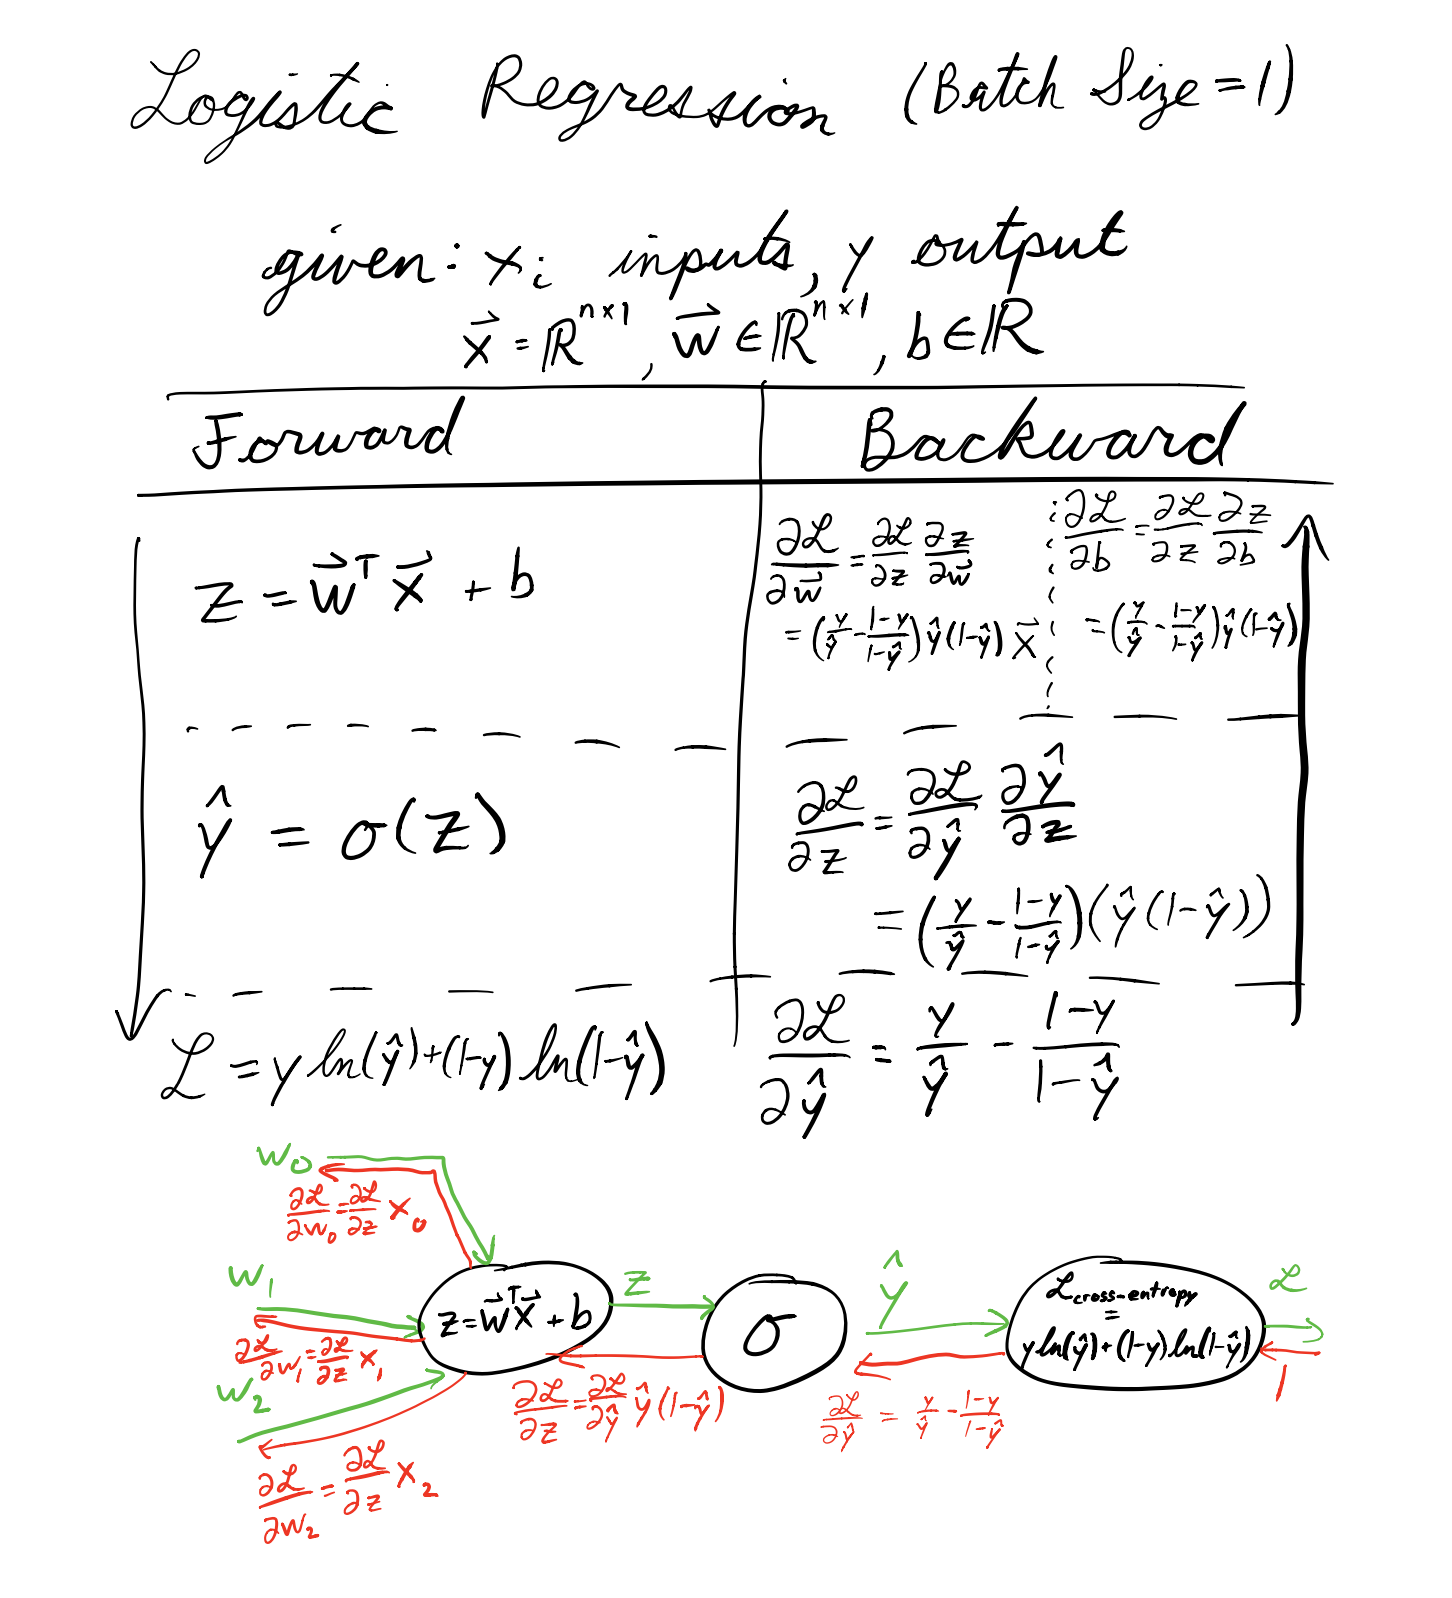 Logistic Regression (Batch Size = 1)
given: xᵢ inputs, y output
x⃗ = ℝⁿˣ¹, w⃗ ∈ ℝⁿˣ¹, b ∈ ℝ
Forward
Backward
z = w⃗ᵀx⃗ + b
∂ℒ/∂w⃗ = ∂ℒ/∂z ∂z/∂w⃗
= (y/ŷ - (1-y)/(1-ŷ)) ŷ(1-ŷ) x⃗
∂ℒ/∂b = ∂ℒ/∂z ∂z/∂b
= (y/ŷ - (1-y)/(1-ŷ)) ŷ(1-ŷ)
ŷ = σ(z)
∂ℒ/∂z = ∂ℒ/∂ŷ ∂ŷ/∂z
= (y/ŷ - (1-y)/(1-ŷ))(ŷ(1-ŷ))
ℒ = y ln(ŷ) + (1-y) ln(1-ŷ)
∂ℒ/∂ŷ = y/ŷ - (1-y)/(1-ŷ)
w₀
∂ℒ/∂w₀ = ∂ℒ/∂z x₀
w₁
∂ℒ/∂w₁ = ∂ℒ/∂z x₁
w₂
∂ℒ/∂w₂ = ∂ℒ/∂z x₂
z = w⃗ᵀx⃗ + b
z
∂ℒ/∂z = ∂ℒ/∂ŷ ŷ(1-ŷ)
σ
ŷ
∂ℒ/∂ŷ = y/ŷ - (1-y)/(1-ŷ)
ℒcross-entropy
=
y ln(ŷ) + (1-y) ln(1-ŷ)
ℒ
1